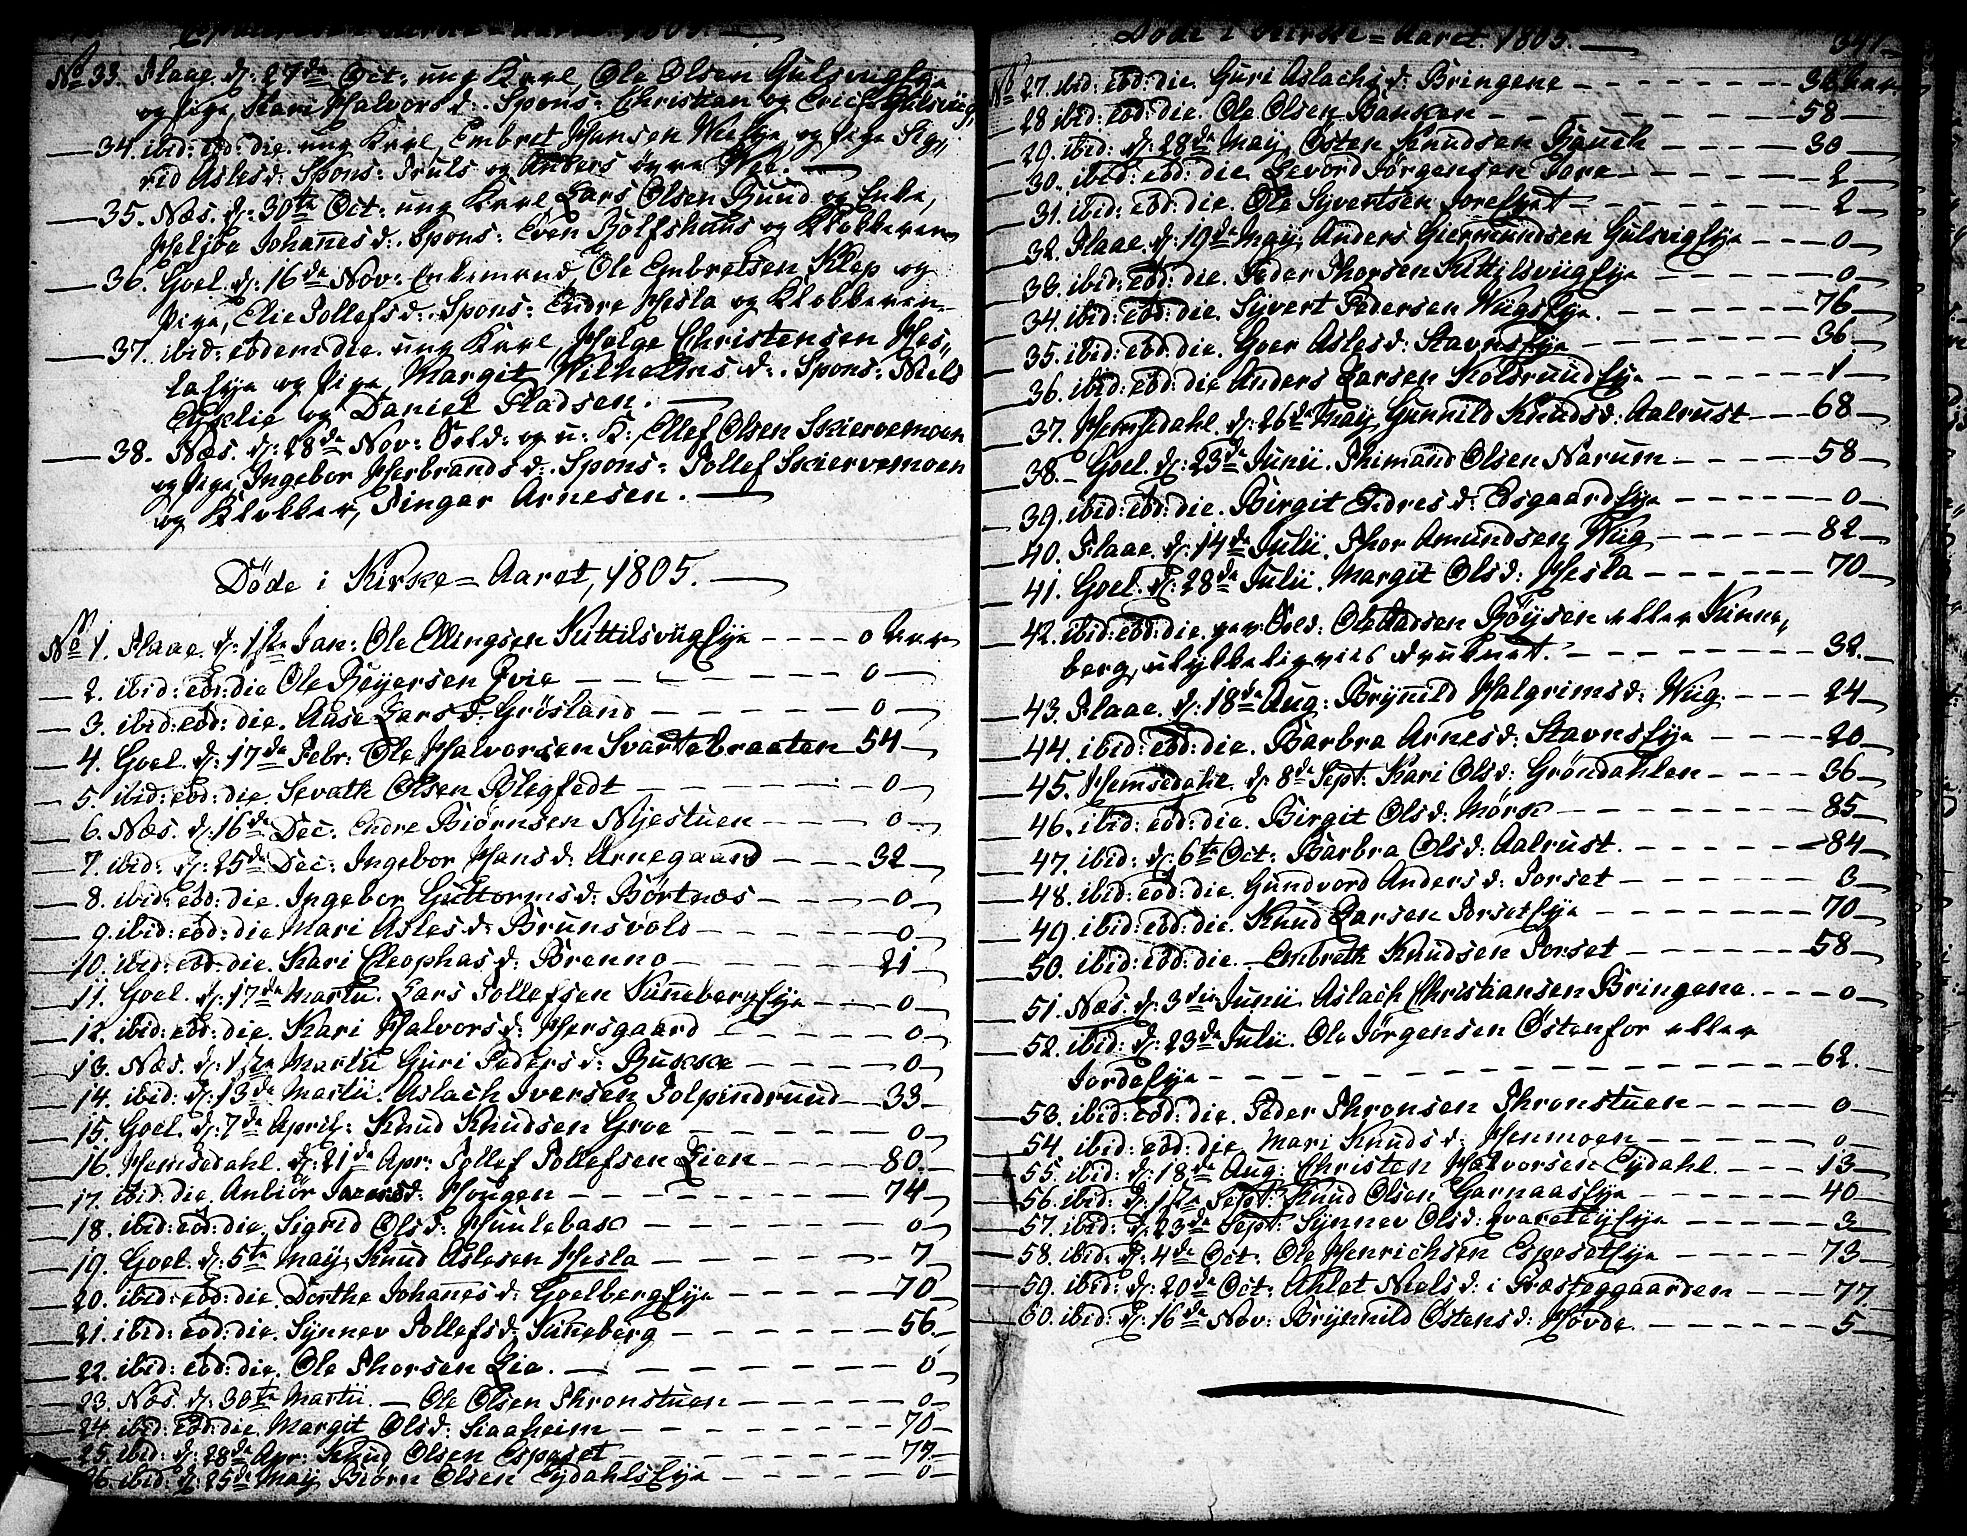 Copulerede i Kirke=Aaret 1805.
No 33. Flaae. d: 27de Oct: ung Karl, Ole Olsen Gulsvigeje
og Pige, Kari Halvorsd:. Spons: Christian og Erich Gulsviig,
34. ibid: ebd: die. ung Karl, Embret Hansen Weeje, og Pige Sig„
rid Aslesd: Spons: Truls og Anders øvre Wee.
35. Næs. d: 30te Oct: ung Karl Lars Olsen Ruud og Enke,
Heljøe Johanesd:. Spons: Even Rolfshuus og Klokkeren
36. Goel. d: 16de Nov: Enkemand, Ole Embretsen Klep og
Pige, Elie Tollefsd:. Spons: Endre Hesla og Klokkeren.
37. ibid: ebdem die. ung Karl, Helge Christensen Hes„
laeje og Pige, Margit Wilhelmsd:. Spons: Niels
Eyklie og Daniel Pladsen.
38. Næs. d: 28de Nov: Sold: og u: K: Ellef Olsen Skiervemoen
og Pige, Ingebor Herbrandsd:. Spons: Tollef Skiervemoen
og Klokker, Finger Arnesen.
Døde i Kirke=Aaret, 1805.
No 1. Flaae. d: 1ste Jan: Ole Ellingsen Kittilsviigeje - - - - 0 Aar
2. ibid: ebd: die Ole Reyersen Hvie - - - - 0
3. ibid: ebd: die. Aase Larsd: Grøsland - - - - 0
4. Goel. d: 17de Febr: Ole Halvorsen Svartebraaten 54
5. ibid: ebd: die. Sevath Olsen Blegfedt - - - - 0
6. Næs. d: 16de Dec: Endre Biørnsen Nyestuen - - - - 0
7. ibid: d: 25de Dec: Ingebor Hansd: Arnegaard - - - 32
8. ibid: ebd: die. Ingebor Guttormsd: Børtnæs - - - - 0
9. ibid: ebd: die Mari Aslesd: Brunsvold - - - - 0
10. ibid: ebd: die. Kari Cleophasd: Brenno - - - - 21
11. Goel. d: 17de Martii. Lars Tollefsen Sunebergeje - - - 0
12. ibid: ebd: die. Kari Halvorsd: Hersgaard - - - - 0
13. Næs. d: 1ste Martii Guri Pedersd: Rukke - - - - 0
14. ibid: d: 13de Martii. Aslach Iversen Tolpindruud - - 33
15. Goel. d: 7de April: Knud Knudsen Groe - - - - 0
16. Hemsedahl. d: 21de Apr: Tollef Tollefsen Lien - - - 80
17. ibid: die. Anbiør d: Hougen - - - - 74
18. ibid: ebd: die, Sigrid Olsd: Huulebaso - - - - 0
19. Goel. d: 5te May, Knud Aslesen Hesla - - - - 7
20. ibid: ebd: die. Dorthe Johanesd: Goelbergeje - - - - 70
21. ibid: ebd: die. Synnev Tollefsd: Suneberg - - - - 56
22. ibid: ebd: die. Ole Thorsen Lie. - - - - 0
23. Næs. d: 30te Martii. — Ole Olsen Thronstuen - - - - 0
24. ibid: ebd: die. Margit Olsd: Kaaheim - - - - 70
25. ibid: d: 28de Apr: Knud Olsen Espeset - - - - 77
26. ibid: d: 25de May, Biørn Olsen Eydahlseje - - - - 0
Døde i Kirke=Aaret. 1805.
No 27. ibid: ebd: die. Guri Aslachsd: Bringene - - - - 36 Aar
28 ibid: ebd: die. Ole Olsen Banken - - - - 58
29. ibid: d: 28de May, Østen Knudsen Hauch - - - - 30
30. ibid: ebd: die. Levord Jørgensen - - - - 2
31. ibid: ebd: die. Ole Syvertsen - - - - 2
32. Flaae. d: 19de May, Anders Giermundsen Gulsvigeje - - - 0
33. ibid: ebd: die. Peder Thorsen Kittilsviigeje - - - 0
34. ibid: ebd: die. Syvert Pedersen Wiigseje. - - - 76
35. ibid: ebd: die. Goer Aslesd: Stavnseje - - - 36
36. ibid: ebd: die Anders Larsen Kolsruudeje - - - 1
37. Hemsedahl. d: 26de May, Gunnild Knudsd: Aalrust - - - 68
38. Goel. d: 23de Junii. Thimand Olsen Narum - - - 58
39. ibid: ebd: die. Birgit Endresd: Edsgaardeje - - - 0
40. Flaae. d: 14de Julii. Thor Amundsen Wiig - - - 82
41. Goel. d: 28de Julii. Margit Olsd: Hesla - - - 70
42. ibid: ebd: die. gev: Sold: Ole Tadsen Røysen eller Sunne„
berg, ulykkeligviis druknet. - - - 32.
43. Flaae. d: 18de Aug: Brynild Halgrimsd: Wiig. - - - 24
44. ibid: ebd: die. Barbra Arnesd: Stavnseje - - - 20
45. Hemsedahl. d: 8de Sept: Kari Olsd: Grøndahlen - - - 36
46. ibid: ebd: die. Birgit Olsd: Mørk - - - 85
47. ibid: d: 6te Oct: Barbra Olsd: Aalrust. - - - 84
48. ibid: ebd: die. Gundvord Andersd: Torset - - - 3
49. ibid: ebd: die. Knud Larsen Torseteje - - - 70
50. ibid: ebd: die. Embreth Knudsen Torset - - - 58
51. Næs. d: 3die Junii Aslach Christiansen Bringene. - - - 0
52. ibid: d: 23de Julii. Ole Jørgensen Østenfor eller
Jordeeje - - - 62.
53. ibid: ebd: die. Peder Thronsen Thronstuen - - - 0
54. ibid: ebd: die, Mari Knudsd: Henmoen - - - 0
55. ibid: d: 18de Aug: Christen Halvorsen Eydahl - - - 13
56. ibid: d: 1ste Sept: Knud Olsen Garnaaseje - - - 40
57. ibid: d: 23de Sept: Synnev Olsd: - - - 3
58. ibid: d: 4de Oct: Ole Henrichsen Espeseteje - - - 73
59. ibid: d: 20de Oct: Ahlet Nielsd: i Præsteggaarden - - - 77
60. ibid: d: 16de Nov: Brynnild Østensd: Høvde. - - - 5